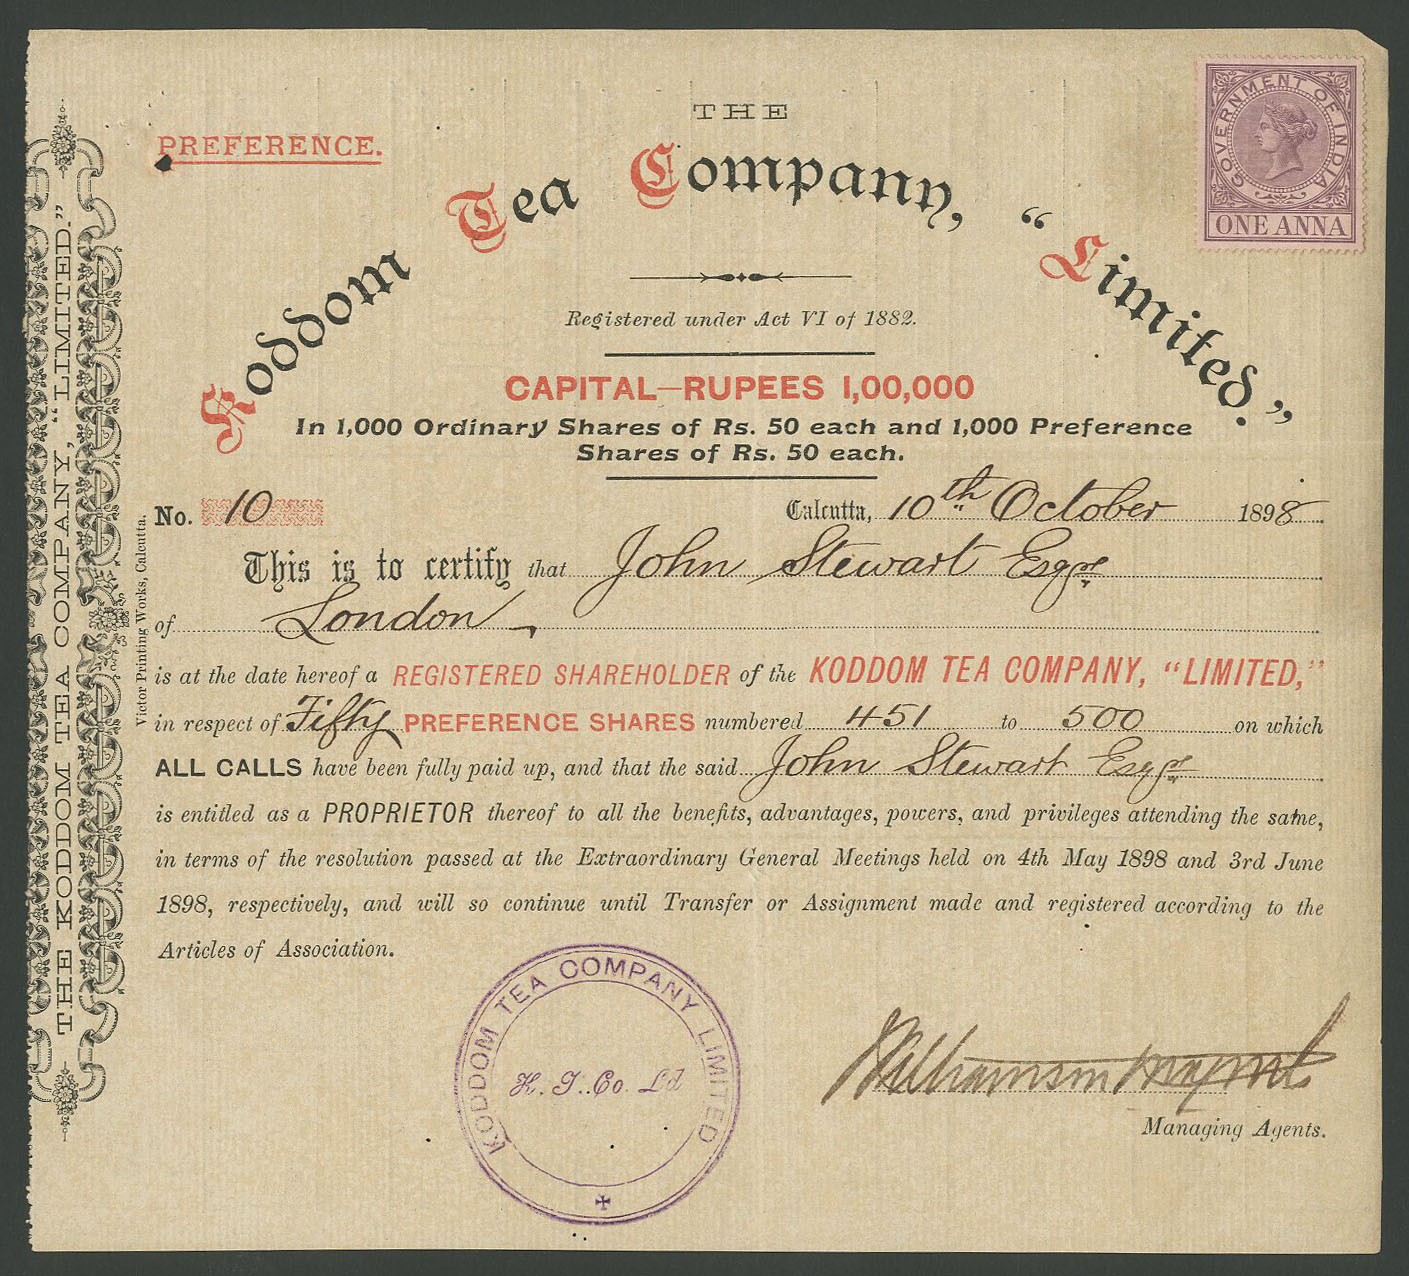 THE
PREFERENCE.
Koddom Tea Company, “Limited.”
GOVERNMENT OF INDIA
ONE ANNA
Registered under Act VI of 1882.
CAPITAL—RUPEES 1,00,000
In 1,000 Ordinary Shares of Rs. 50 each and 1,000 Preference
Shares of Rs. 50 each.
No. 10 Calcutta, 10th October 1898
This is to certify that John Stewart Esqre
of London,
is at the date hereof a REGISTERED SHAREHOLDER of the KODDOM TEA COMPANY, “LIMITED,”
in respect of Fifty PREFERENCE SHARES numbered 451 to 500 on which
ALL CALLS have been fully paid up, and that the said John Stewart Esqre
is entitled as a PROPRIETOR thereof to all the benefits, advantages, powers, and privileges attending the same,
in terms of the resolution passed at the Extraordinary General Meetings held on 4th May 1898 and 3rd June
1898, respectively, and will so continue until Transfer or Assignment made and registered according to the
Articles of Association.
KODDOM TEA COMPANY LIMITED
K. T. Co. Ld
Williamson Magor
Managing Agents.
THE KODDOM TEA COMPANY, “LIMITED.”
Victor Printing Works, Calcutta.